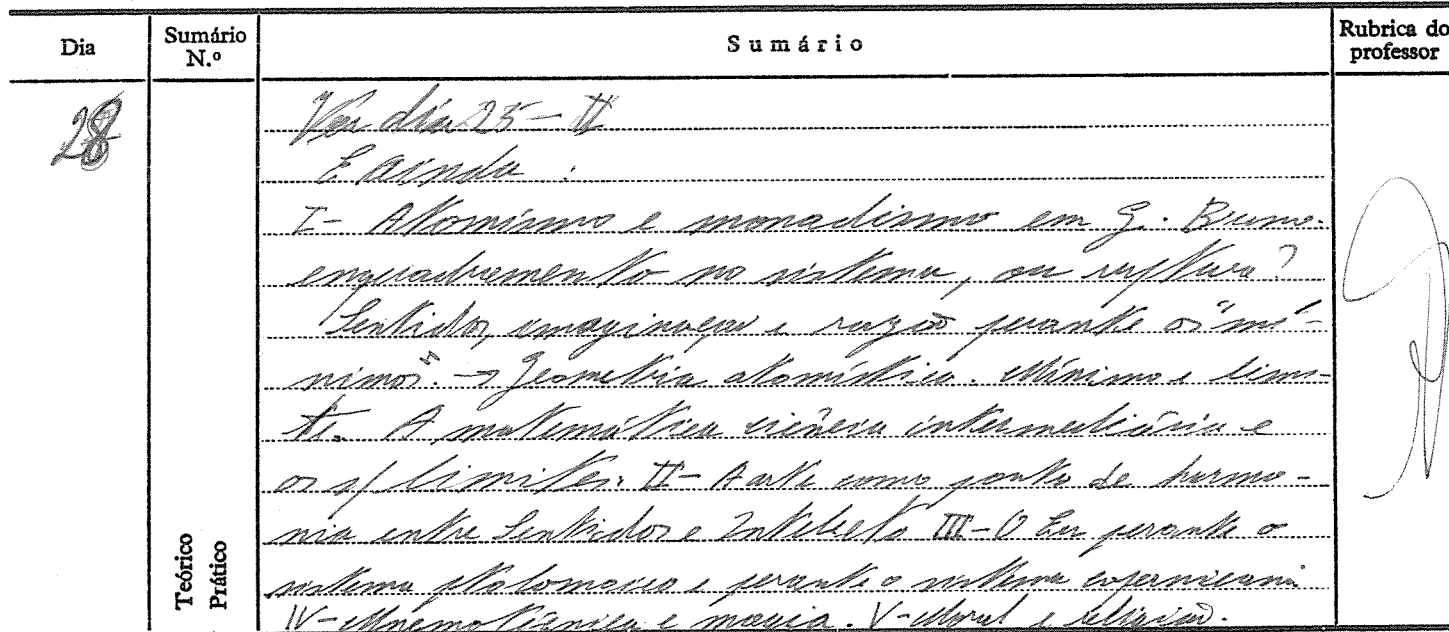 Dia
Sumário N.º
Sumário
Rubrica do professor
28
Ver dia 25 - II
E ainda :
I - Atomismo e monadismo em G. Bruno.
enquadramento no sistema, ou ruptura?
Sentidos, imaginação e razão perante os "mí-
nimos". → Geometria atomística. Mínimo e limi-
te. A matemática ciência intermediária e
os s/ limites. II - A arte como ponto de harmo-
nia entre Sentidos e Intelecto III - O Eu perante o
sistema ptolomaico e perante o sistema copernicano
IV - Mnemotécnica e magia. V - Moral e religião.
Teórico
Prático